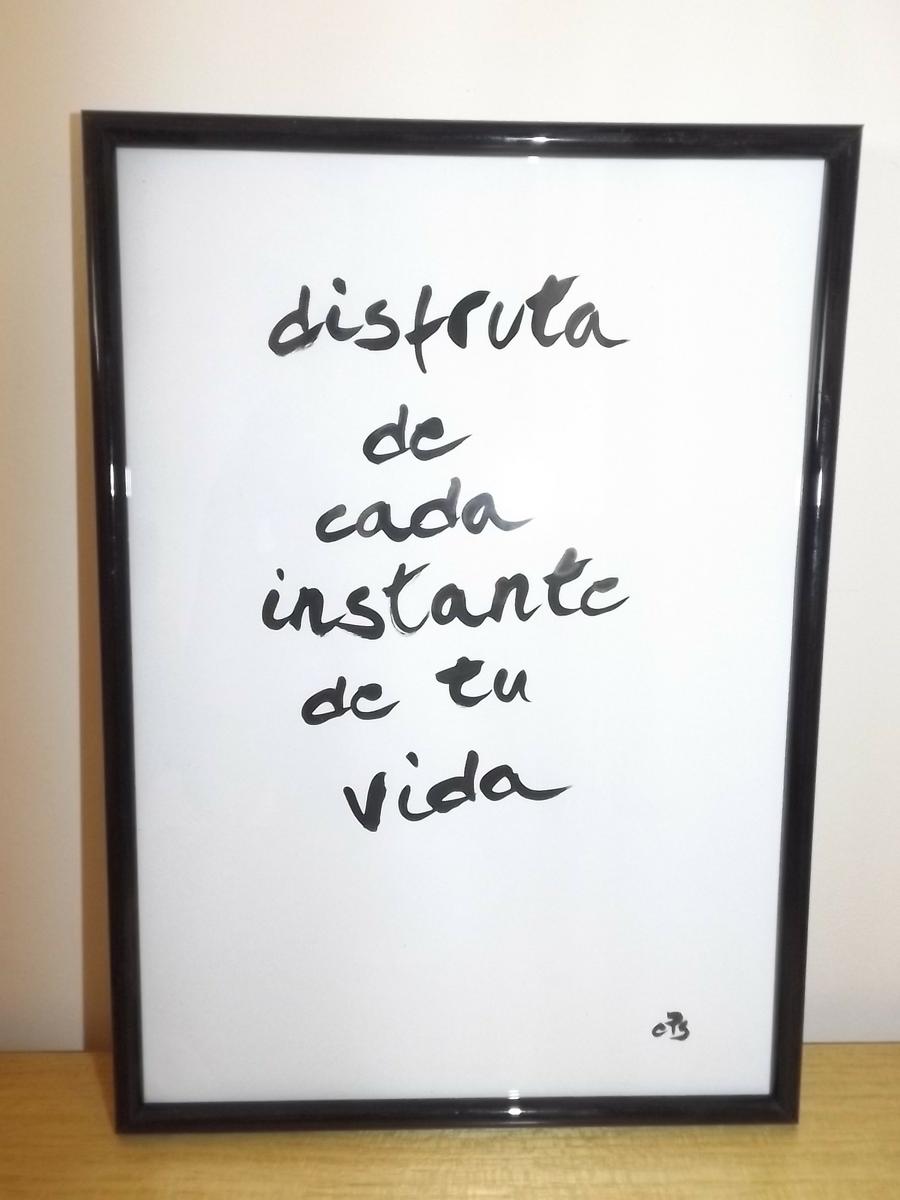 disfruta
de
cada
instante
de tu
vida